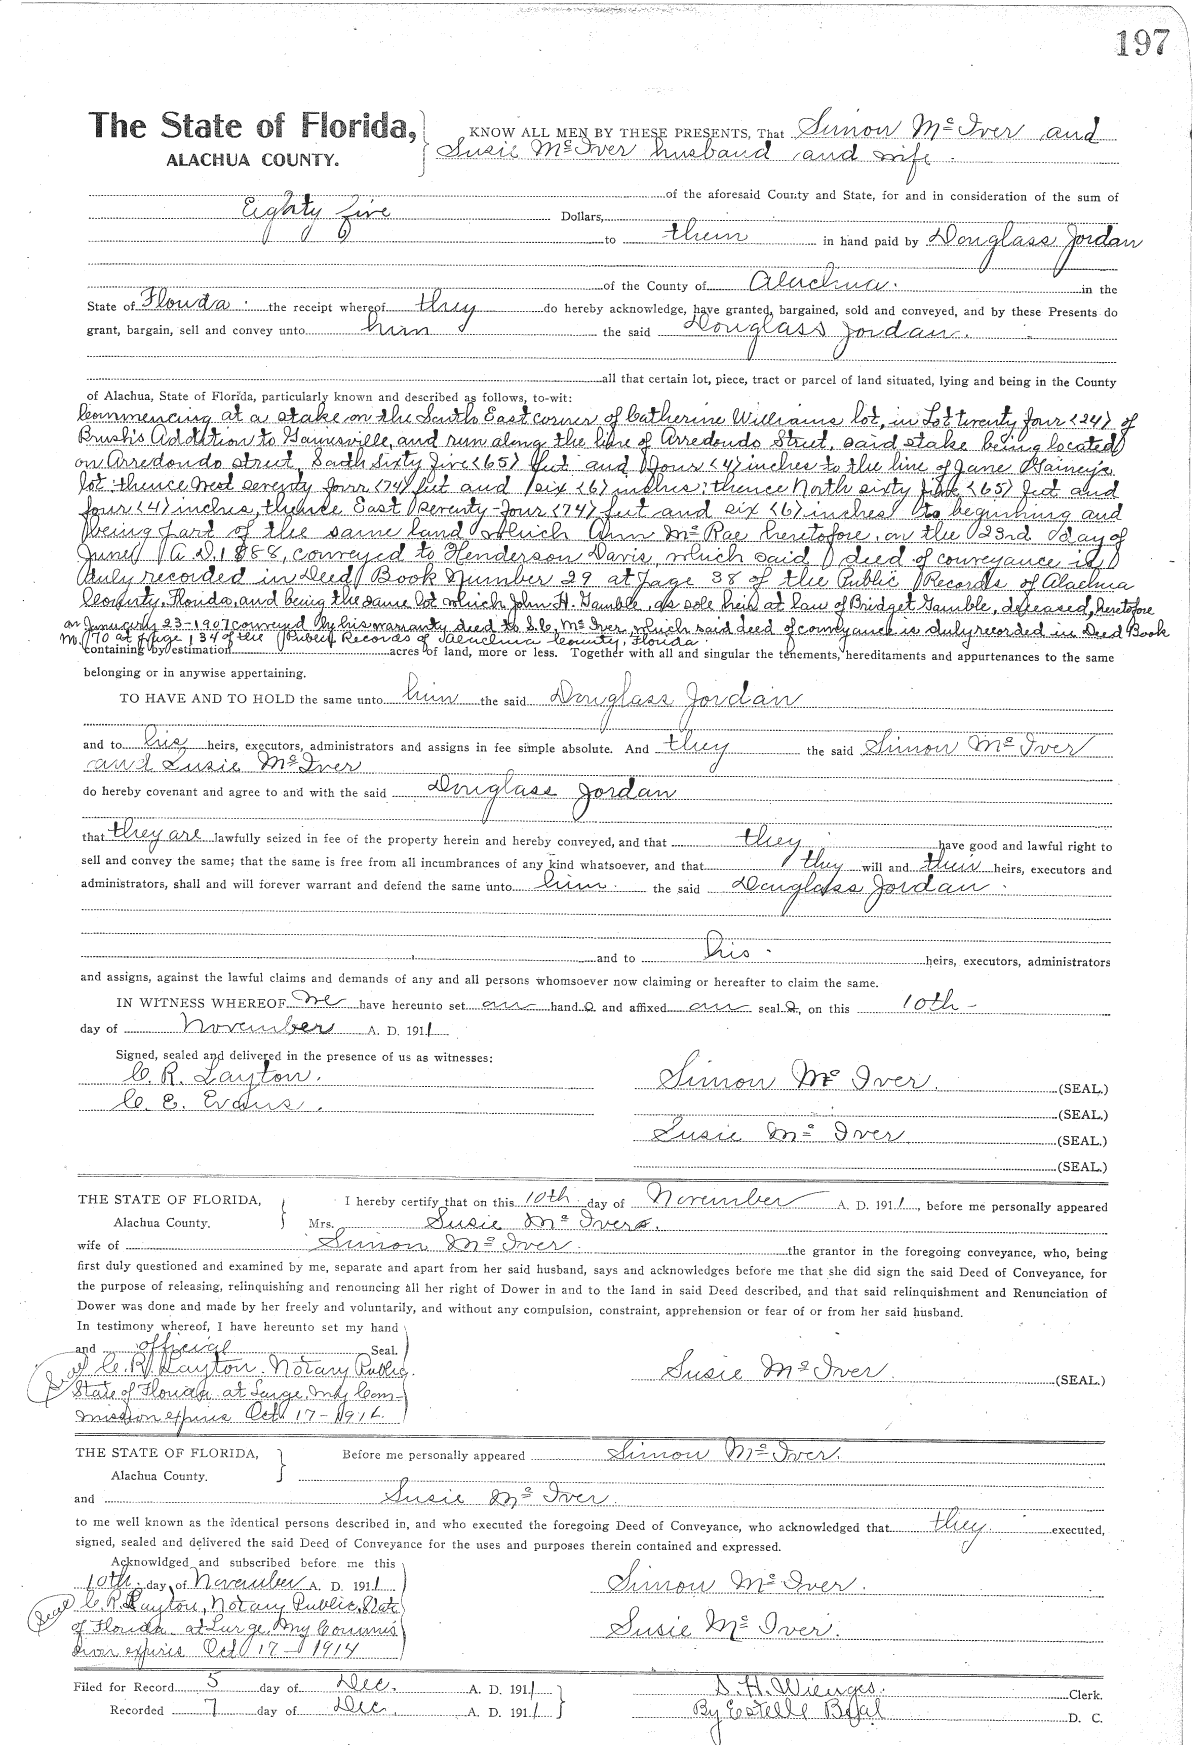 197
The State of Florida, KNOW ALL MEN BY THESE PRESENTS, That Simon Mc Iver and
ALACHUA COUNTY. Susie Mc Iver husband and wife.
of the aforesaid County and State, for and in consideration of the sum of
Eighty five Dollars,
to them in hand paid by Douglass Jordan
of the County of Alachua. in the
State of Florida: the receipt whereof they do hereby acknowledge, have granted, bargained, sold and conveyed, and by these Presents do
grant, bargain, sell and convey unto him the said Douglass Jordan.
all that certain lot, piece, tract or parcel of land situated, lying and being in the County
of Alachua, State of Florida, particularly known and described as follows, to-wit:
Commencing at a stake on the South East corner of Catherine Williams lot, in Lot twenty four <24> of
Brush's Addition to Gainesville, and run along the line of Arredondo Street, said stake being located
on Arredondo street, South Sixty five <65> feet and four <4> inches to the line of Jane Gainey's
lot: thence West seventy four <74> feet and six <6> inches; thence North sixty five <65> feet and
four <4> inches, thence East seventy-four <74> feet and six <6> inches to beginning and
being part of the same land which Ann Mc Rae heretofore, on the 23rd day of
June A.D. 1888, conveyed to Henderson Davis, which said deed of conveyance is
duly recorded in Deed Book Number 29 at page 38 of the Public Records of Alachua
County, Florida, and being the same lot which John H. Gamble, as sole heir at law of Bridget Gamble, deceased, heretofore
on January 23-1907 conveyed by his warranty deed to S.C. Mc Iver, which said deed of conveyance is duly recorded in Deed Book
No. 70 at page 134 of the Public Records of Alachua County, Florida.
containing by estimation acres of land, more or less. Together with all and singular the tenements, hereditaments and appurtenances to the same
belonging or in anywise appertaining.
TO HAVE AND TO HOLD the same unto him the said Douglass Jordan
and to his heirs, executors, administrators and assigns in fee simple absolute. And they the said Simon Mc Iver
and Susie Mc Iver
do hereby covenant and agree to and with the said Douglass Jordan
that they are lawfully seized in fee of the property herein and hereby conveyed, and that they have good and lawful right to
sell and convey the same; that the same is free from all incumbrances of any kind whatsoever, and that they will and their heirs, executors and
administrators, shall and will forever warrant and defend the same unto him. the said Douglass Jordan.
and to his. heirs, executors, administrators
and assigns, against the lawful claims and demands of any and all persons whomsoever now claiming or hereafter to claim the same.
IN WITNESS WHEREOF we have hereunto set our hand s and affixed our seal s, on this 10th-
day of November A. D. 1911
Signed, sealed and delivered in the presence of us as witnesses:
C. R. Layton. Simon Mc Iver. (SEAL.)
C. E. Evans. (SEAL.)
Susie Mc Iver (SEAL.)
(SEAL.)
THE STATE OF FLORIDA, I hereby certify that on this 10th day of November A. D. 1911, before me personally appeared
Alachua County. Mrs. Susie Mc Iver.
wife of Simon Mc Iver. the grantor in the foregoing conveyance, who, being
first duly questioned and examined by me, separate and apart from her said husband, says and acknowledges before me that she did sign the said Deed of Conveyance, for
the purpose of releasing, relinquishing and renouncing all her right of Dower in and to the land in said Deed described, and that said relinquishment and Renunciation of
Dower was done and made by her freely and voluntarily, and without any compulsion, constraint, apprehension or fear of or from her said husband.
In testimony whereof, I have hereunto set my hand
and official Seal.
Seal C. R. Layton. Notary Public. Susie Mc Iver. (SEAL.)
State of Florida at Large. My Com-
mission expires Oct. 17-1914.
THE STATE OF FLORIDA, Before me personally appeared Simon Mc Iver.
Alachua County.
and Susie Mc Iver.
to me well known as the identical persons described in, and who executed the foregoing Deed of Conveyance, who acknowledged that they executed,
signed, sealed and delivered the said Deed of Conveyance for the uses and purposes therein contained and expressed.
Acknowldged and subscribed before me this
10th. day of November A. D. 1911 Simon Mc Iver.
Seal C. R. Layton, Notary Public, State
of Florida at Large. My Commis Susie Mc Iver.
sion expires Oct 17-1914
Filed for Record 5 day of Dec. A. D. 1911 S. H. Wienges. Clerk.
Recorded 7 day of Dec. A. D. 1911 By Estelle D. C.